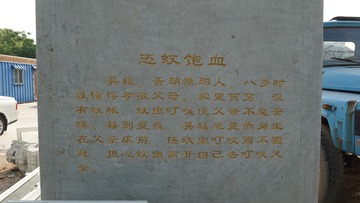 恣蚊饱血
吴猛，晋朝濮阳人，八岁时
就懂得孝敬父母。家里贫穷，没
有蚊帐，蚊虫叮咬使父亲不能安
睡。每到夏夜，吴猛总是赤身坐
在父亲床前，任蚊虫叮咬而不驱
赶，担心蚊虫离开自己去叮咬父
亲。